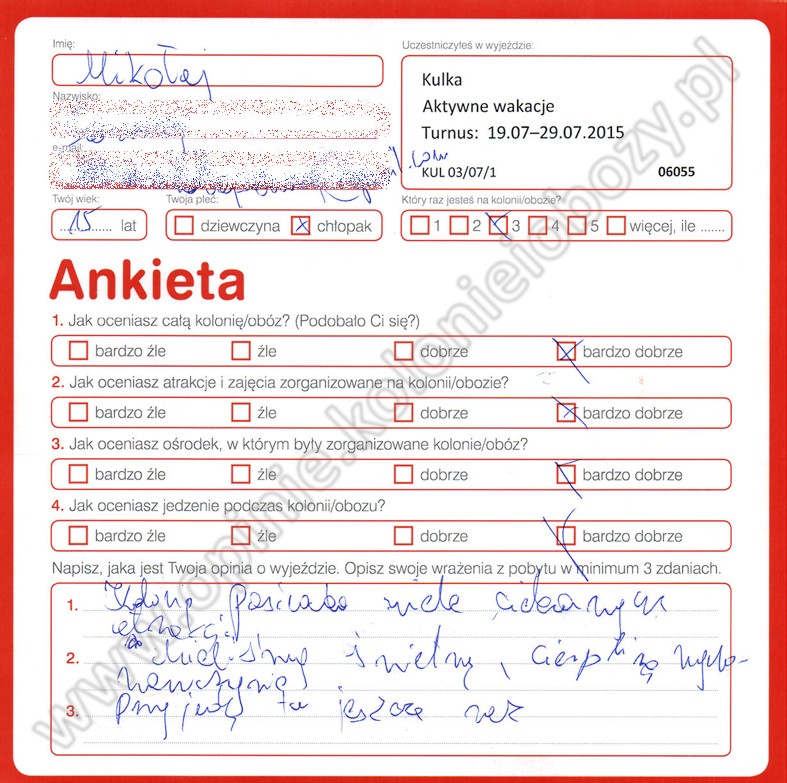 Imię:
Mikołaj
Uczestniczyłeś w wyjeździe:
Kulka
Aktywne wakacje
Turnus: 19.07–29.07.2015
KUL 03/07/1 06055
Nazwisko:
e-mail
il.com
Twój wiek: Twoja płeć: Który raz jesteś na kolonii/obozie?
15 lat dziewczyna chłopak 1 2 3 4 5 więcej, ile .......
Ankieta
1. Jak oceniasz całą kolonię/obóz? (Podobało Ci się?)
bardzo źle źle dobrze bardzo dobrze
2. Jak oceniasz atrakcje i zajęcia zorganizowane na kolonii/obozie?
bardzo źle źle dobrze bardzo dobrze
3. Jak oceniasz ośrodek, w którym były zorganizowane kolonie/obóz?
bardzo źle źle dobrze bardzo dobrze
4. Jak oceniasz jedzenie podczas kolonii/obozu?
bardzo źle źle dobrze bardzo dobrze
Napisz, jaka jest Twoja opinia o wyjeździe. Opisz swoje wrażenia z pobytu w minimum 3 zdaniach.
1. wiele ciekawych
atrakcji
2. Mieliśmy świetną, cierpliwą wycho-
wawczynię
3. Przyjadę tu jeszcze raz
www.opinie.kolonieiobozy.pl